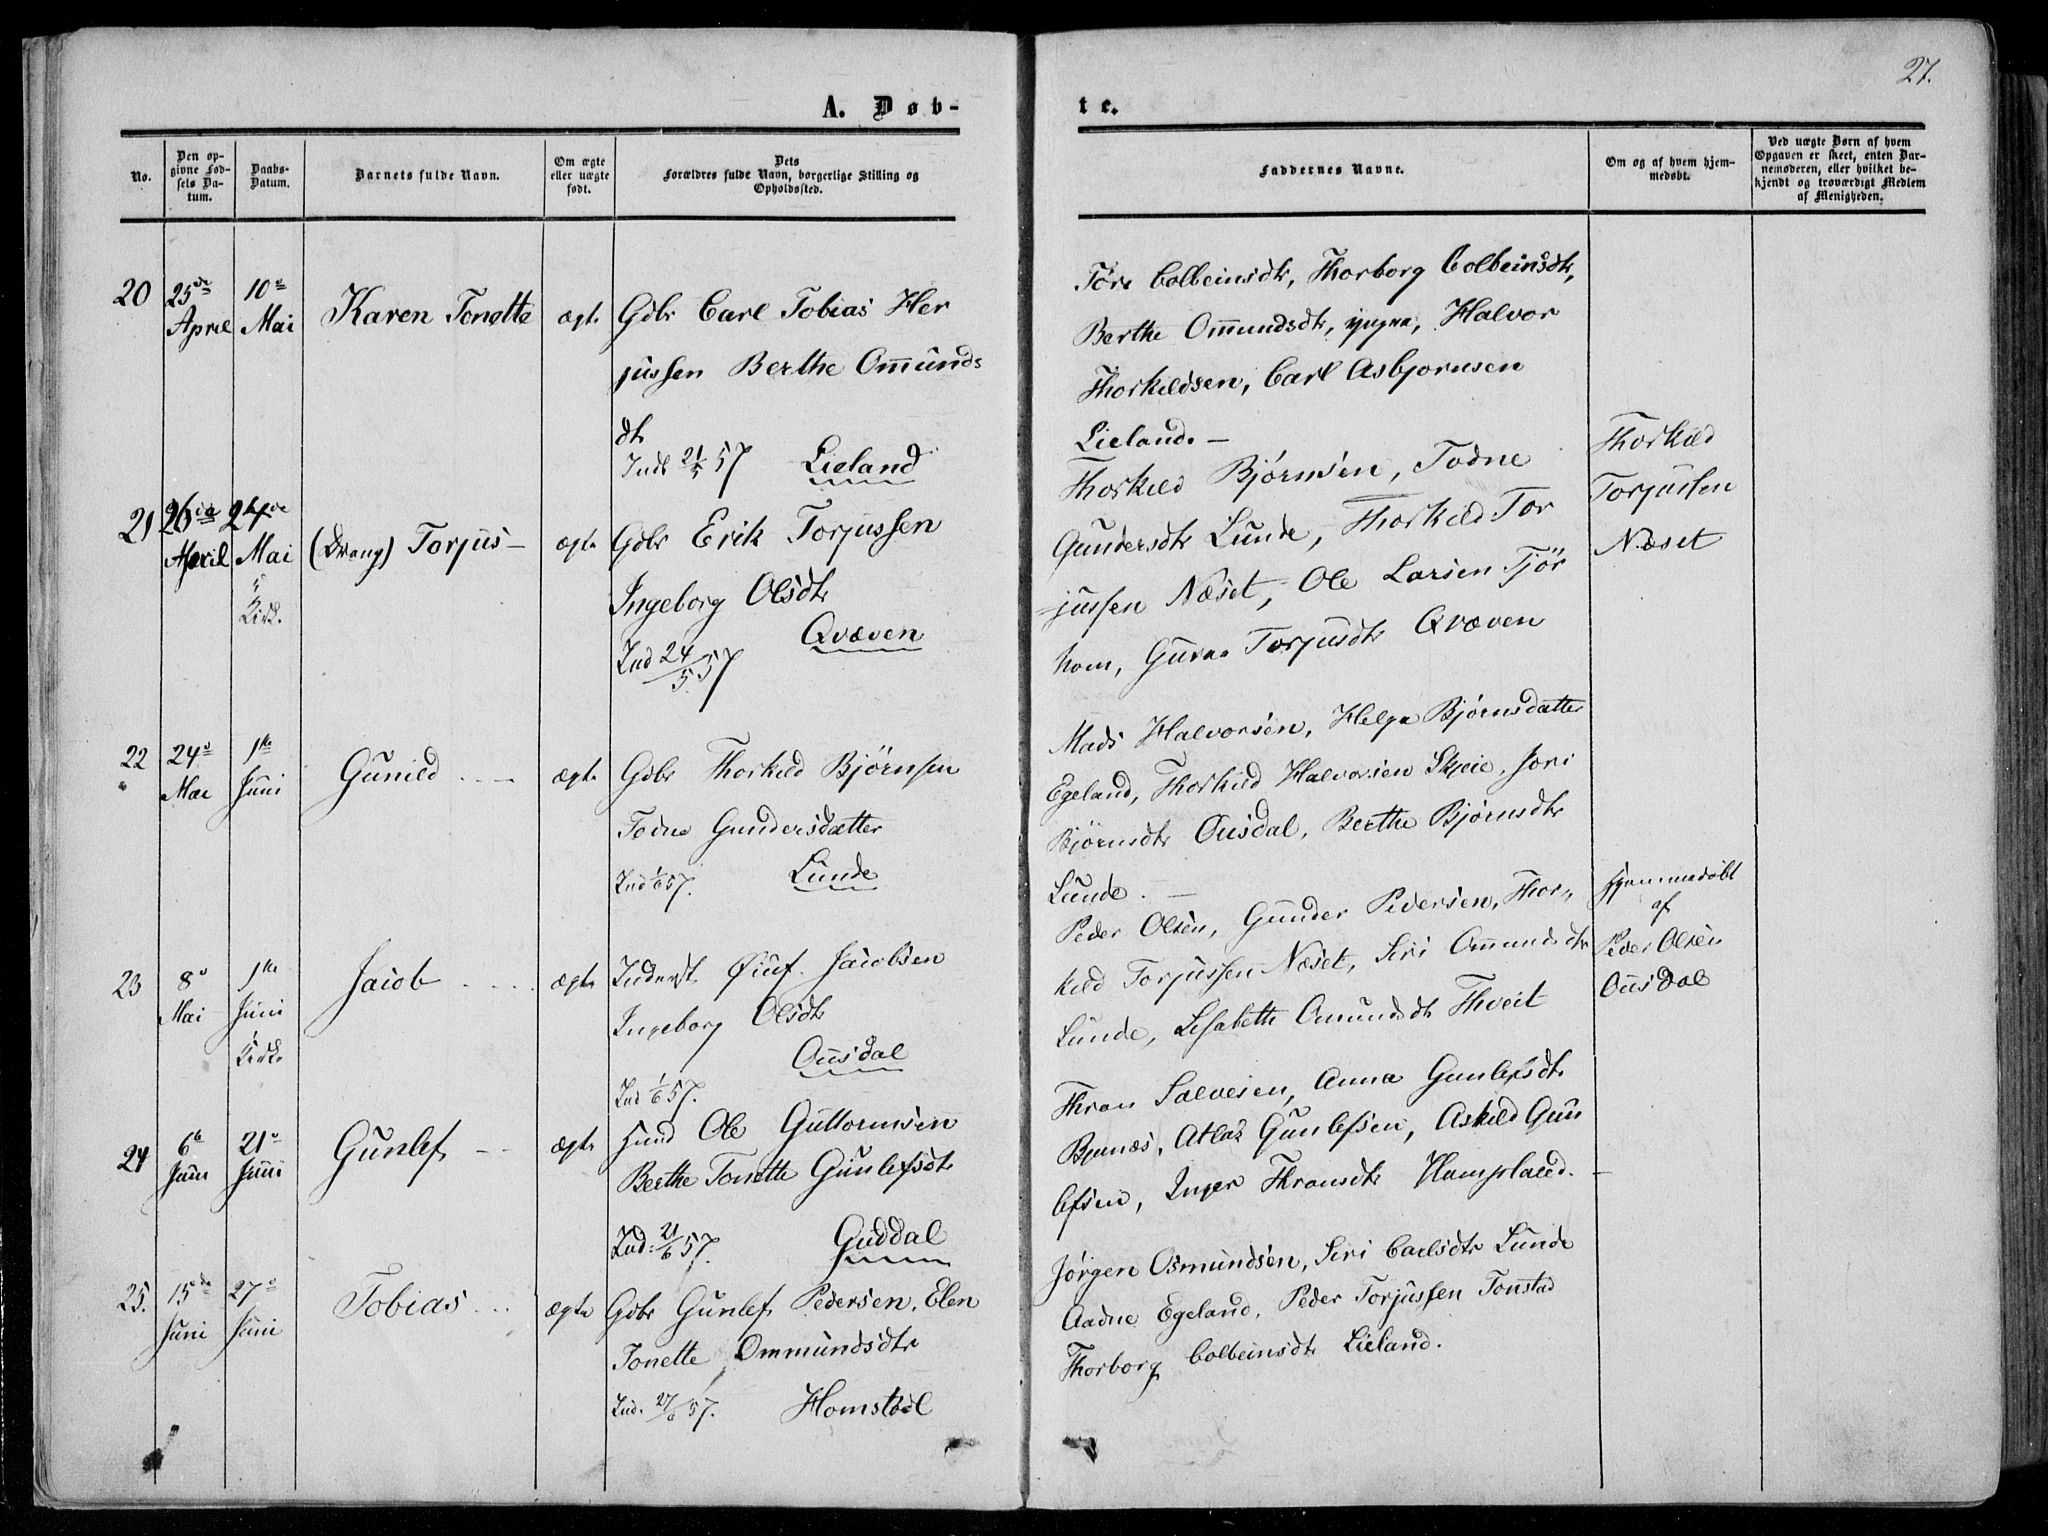 27.
A. Døb-
te.
No.
Den op-
givne Fød-
sels Da-
tum.
Daabs-
Datum.
Barnets fulde Navn.
Om ægte
eller uægte
født.
Dets
Forældres fulde Navn, borgerlige Stilling og
Opholdssted.
Faddernes Navne.
Om og af hvem hjem-
medøbt.
Ved uægte Børn af hvem
Opgaven er skeet, enten Bar-
nemoderen, eller hvilket be-
kjendt og troværdigt Medlem
af Menigheden.
20
25de
April
10de
Mai
Karen Tonette
ægte
Gdbr Carl Tobias Her
jussen Berthe Omunds
dtr
Indt 21/5 57 Lieland
Colbeinsdtr, Thorborg Colbeinsdtr,
Berthe Omundsdtr, Halvor
Thorkildsen, Carl Asbjornsen
Lieland. -
21
26de
April
24de
Mai
i
Kirk.
(Dreng) Torjus -
ægte
Gdbr Erik Torjussen
Ingeborg Olsdtr
Qvæven
Ind 24/5 57
Thorkild Bjørnsen, Todne
Gundersdtr Lunde, Thorkild Tor
jussen Næset, Ole Larsen Tjör
hom, Torjusdtr Qvæven
Thorkild
Torjussen
Næset
22
24de
Mai
1ste
Juni
Gunild
ægte
Gdbr Thorkild Bjørnsen
Todne Gundersdatter
Ind 1/6 57. Lunde
Mads Halvorsen, Helga Bjørnsdatter
Egeland, Thorkild Halvorsen Skjeie, Jori
Bjørnsdtr Ousdal, Berthe Bjørnsdtr
Lunde. -
23
8de
Mai
1ste
Juni
i Kirk.
Jacob
ægte
Inderst Jacobsen
Ingeborg Olsdtr
Ousdal
Ind 1/6 57.
Peder Olsen, Gunder Pedersen, Thor-
kild Torjussen Næset, Siri Omundsdtr
Lunde, Lisabeth Omundsdtr Thveit
Hjemmedøbt
af
Peder Olsen
Ousdal
24
6te
Juni
21de
Juni
Gunlef
ægte
Ole Guttormsen
Berthe Tonette Gunlefsdtr
Ind: 21/6 57. Guddal
Thron Salvesen, Anna Gunlefsdtr
Atlak Gunlefsen, Askild Gun
lefsen, Inger Thronsdtr
25.
15de
Juni
27de
Juni
Tobias
ægte
Gdbr Gunlef Pedersen, Elen
Tonette Ommundsdtr
Ind. 27/6 57. Homstøl
Jørgen Osmundsen, Siri Carlsdtr Lunde
Aadne Egeland, Peder Torjussen Tonstad
Thorborg Colbeinsdtr Lieland.